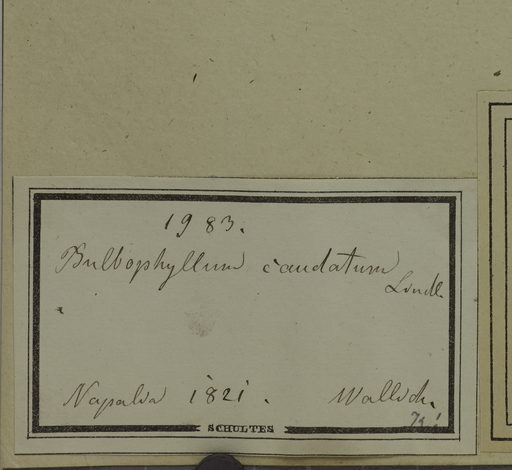 1983.
Bulbophyllum caudatum
Lindl.
Napalia 1821.
Wallich.
SCHULTES